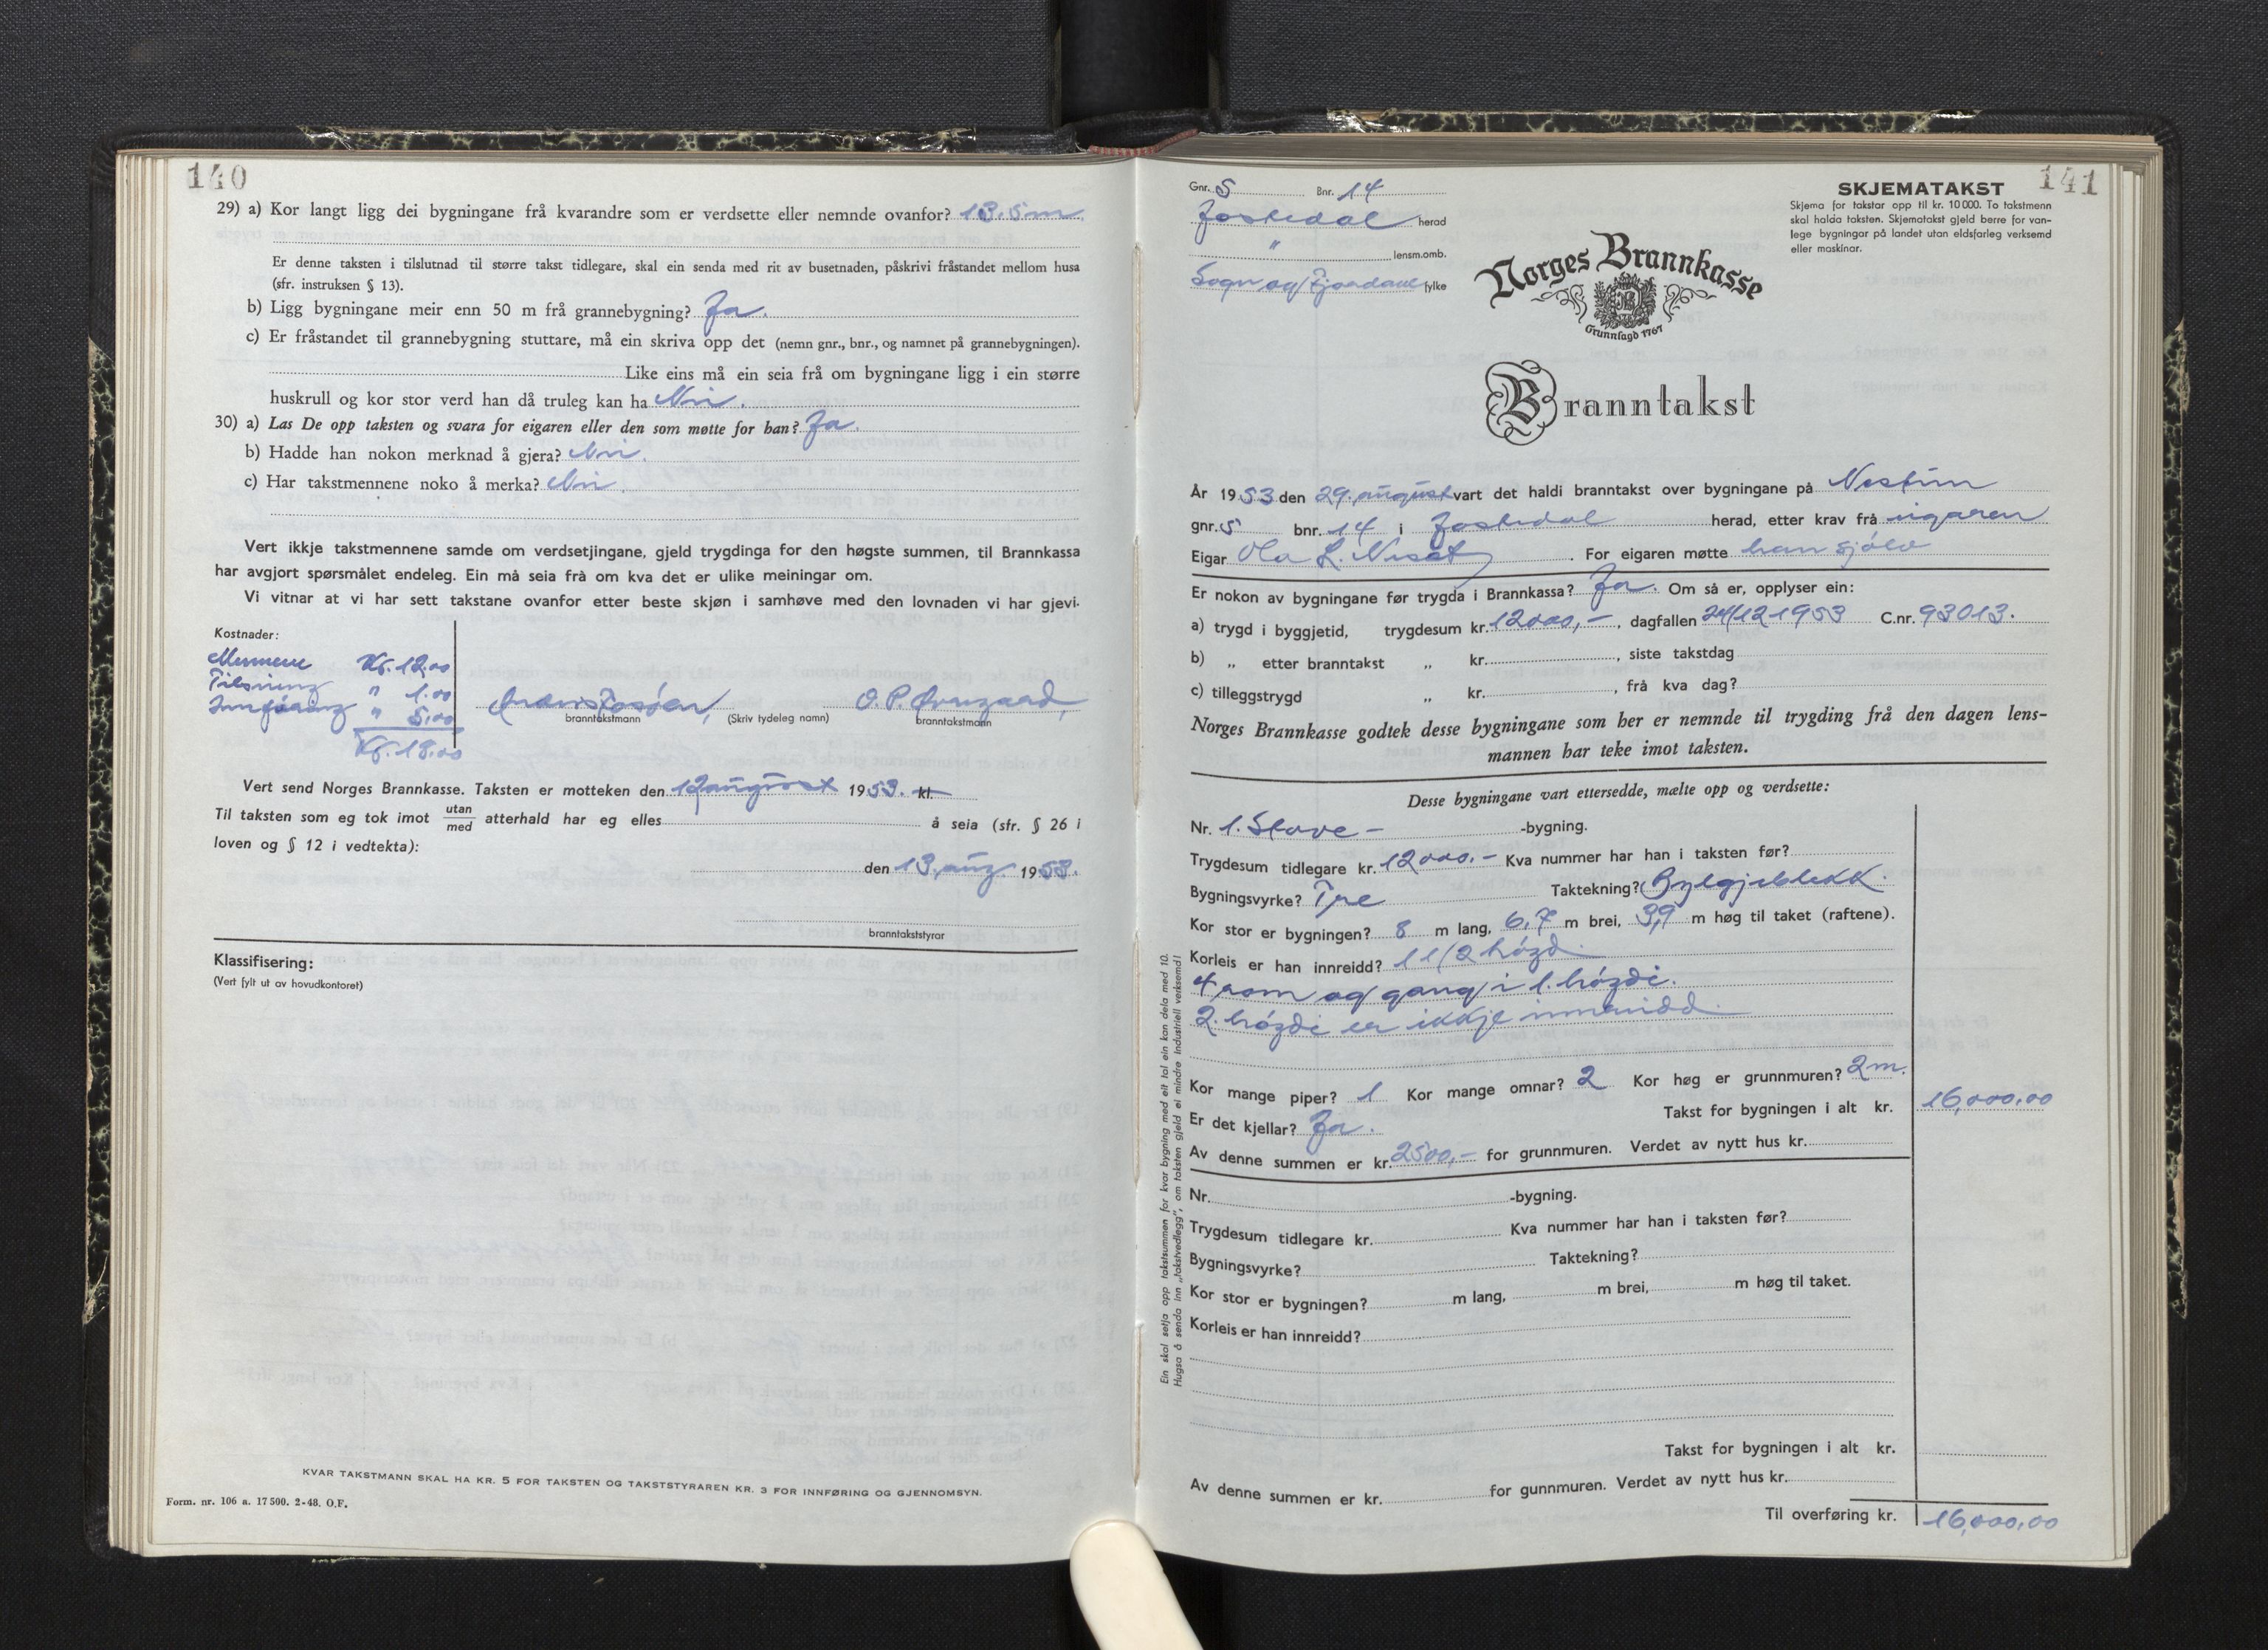 140
29) a) Kor langt ligg dei bygningane frå kvarandre som er verdsette eller nemnde ovanfor? 13.5 m
Er denne taksten i tilslutnad til større takst tidlegare, skal ein senda med rit av busetnaden, påskrivi fråstandet mellom husa
(sfr. instruksen § 13).
b) Ligg bygningane meir enn 50 m frå grannebygning? Ja.
c) Er fråstandet til grannebygning stuttare, må ein skriva opp det (nemn gnr., bnr., og namnet på grannebygningen).
Like eins må ein seia frå om bygningane ligg i ein større
huskrull og kor stor verd han då truleg kan ha Nei.
30) a) Las De opp taksten og svara for eigaren eller den som møtte for han? Ja.
b) Hadde han nokon merknad å gjera? Nei.
c) Har takstmennene noko å merka? Nei.
Vert ikkje takstmennene samde om verdsetjingane, gjeld trygdinga for den høgste summen, til Brannkassa
har avgjort spørsmålet endeleg. Ein må seia frà om kva det er ulike meiningar om.
Vi vitnar at vi har sett takstane ovanfor etter beste skjøn i samhøve med den lovnaden vi har gjevi.
Kostnader:
Mennene Kr. 12.00
Tilsining " 1.00
Innføring " 5.00
Kr. 18.00
O. P.
branntakstmann (Skriv tydeleg namn) branntakstmann
Vert send Norges Brannkasse. Taksten er motteken den 12 august 1953. kl.
Til taksten som eg tok imot utan/med atterhald har eg elles å seia (sfr. § 26 i
loven og § 12 i vedtekta):
den 13. aug. 1953.
branntakststyrar
Klassifisering:
(Vert fylt ut av hovudkontoret)
KVAR TAKSTMANN SKAL HA KR. 5 FOR TAKSTEN OG TAKSTSTYRAREN KR. 3 FOR INNFØRING OG GJENNOMSYN.
Form. nr. 106 a. 17 500. 2-48. O.F.
141
Gnr. 5 Bnr. 14
Jostedal herad
" lensm.omb.
Sogn og Fjordane fylke
SKJEMATAKST
Skjema for takstar opp til kr. 10 000. To takstmenn
skal halda taksten. Skjematakst gjeld berre for van-
lege bygningar på landet utan eldsfarleg verksemd
eller maskinar.
Norges Brannkasse
Grunnlagd 1767
Branntakst
År 1953 den 29. august vart det haldi branntakst over bygningane på
gnr. 5 bnr. 14 i Jostedal herad, etter krav frå eigaren
Eigar Ola L. . For eigaren møtte han sjølv
Er nokon av bygningane før trygda i Brannkassa? Ja. Om så er, opplyser ein:
a) trygd i byggjetid, trygdesum kr. 12000,-, dagfallen 24/12 1953 C.nr. 93013.
b) „ etter branntakst „ kr. , siste takstdag
c) tilleggstrygd „ kr. , frå kva dag?
Norges Brannkasse godtek desse bygningane som her er nemnde til trygding frå den dagen lens-
mannen har teke imot taksten.
Desse bygningane vart ettersedde, mælte opp og verdsette:
Nr. 1. Stove - -bygning.
Trygdesum tidlegare kr. 12000.- Kva nummer har han i taksten før?
Bygningsvyrke? Tre Taktekning? Bylgjeblekk.
Kor stor er bygningen? 8 m lang, 6,7 m brei, 3,9 m høg til taket (raftene).
Korleis er han innreidd? 1 1/2 høgd
4 rom og gang i 1. høgdi.
2. høgdi er ikkje innreidd
Kor mange piper? 1 Kor mange omnar? 2 Kor høg er grunnmuren? 2 m.
Er det kjellar? Ja. Takst for bygningen i alt kr. 16,000.00
Av denne summen er kr. 2500,- for grunnmuren. Verdet av nytt hus kr.
Nr. -bygning.
Trygdesum tidlegare kr. Kva nummer har han i taksten før?
Bygningsvyrke? Taktekning?
Kor stor er bygningen? m lang, m brei, m høg til taket.
Korleis er han innreidd?
Takst for bygningen i alt kr.
Av denne summen er kr. for gunnmuren. Verdet av nytt hus kr.
Til overføring kr. 16,000,00
Ein skal setja opp takstsummen for kvar bygning med eit tal ein kan dela med 10.
Hugsa å senda inn „takstvedlegg", om taksten gjeld ei mindre industriell verksemd!